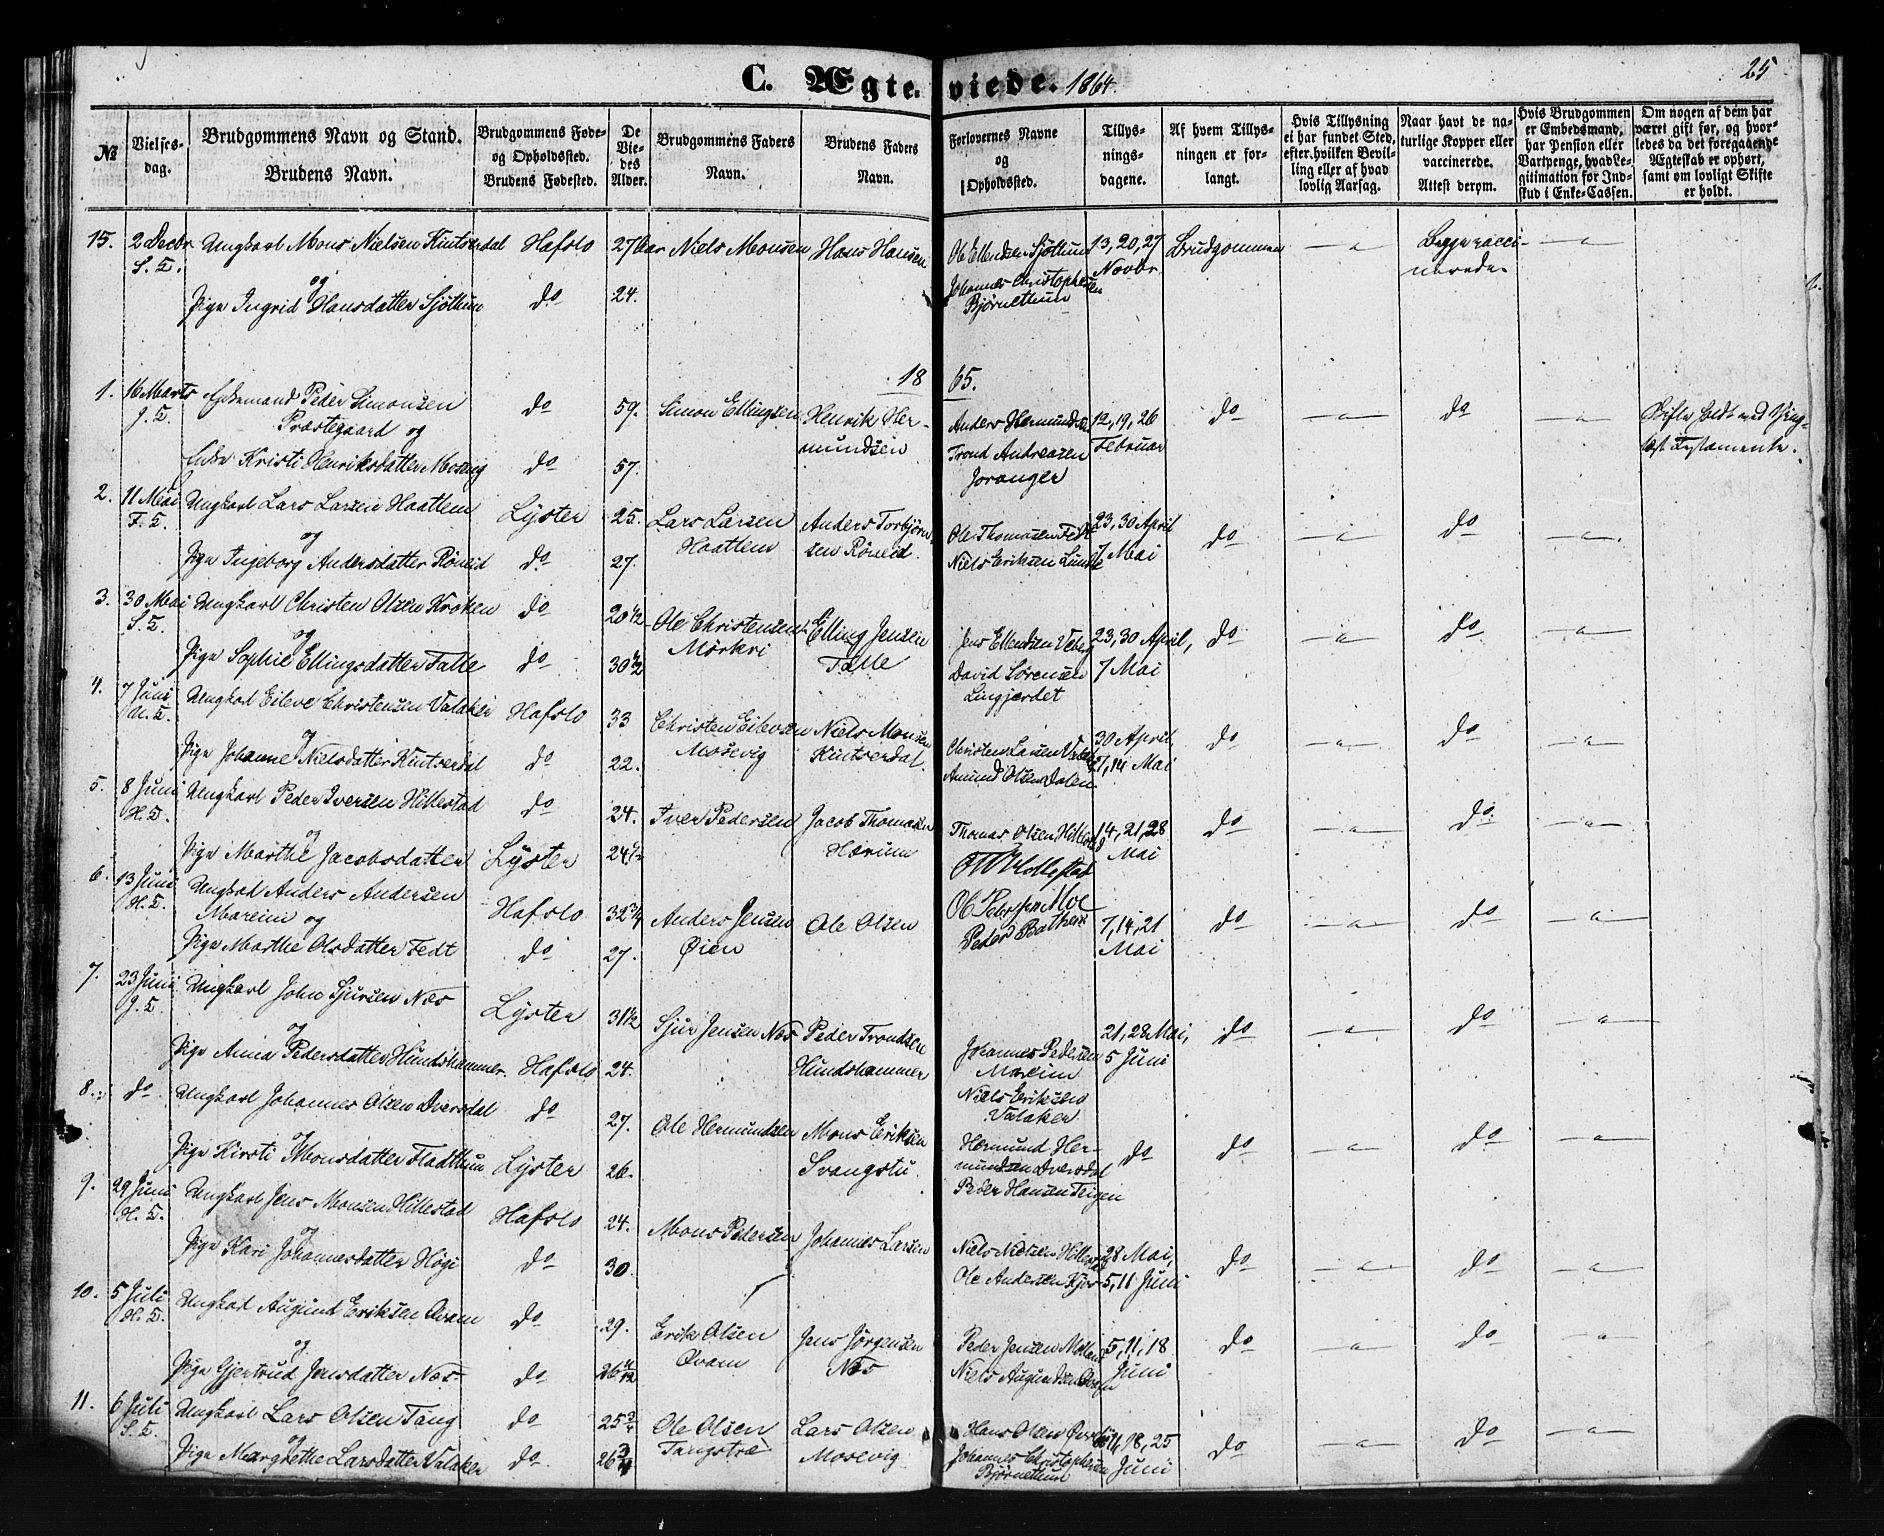 25
C. Ægteviede. 1864.
№
Vielsesdag.
Brudgommens Navn og Stand.
Brudens Navn.
Brudgommens Føde- og Opholdssted.
Brudens Fødested.
De Viedes Alder.
Brudgommens Faders Navn.
Brudens Faders Navn.
Forlovernes Navne og Opholdssted.
Tillysningsdagene.
Af hvem Tillysningen er forlangt.
Hvis Tillysning ei har fundet Sted, efter hvilken Bevilling eller af hvad lovlig Aarsag.
Naar havt de naturlige Kopper eller vaccinerede.
Attest derom.
Hvis Brudgommen er Embedsmand, har Pension eller Vartpenge, hvad Legitimation for Indskud i Enke-Cassen.
Om nogen af dem har været gift før, og hvorledes da det foregaaende Ægteskab er ophørt, samt om lovligt Skifte er holdt.
15. 2 Decbr. Ungkarl Mons Nielsen Kintserdal Hafslo 27 Aar Niels Monsen Hans Hansen Ole Ellendsen Sjøthun 13, 20, 27 Brudgommen —a— Begge vacci- —a—
S. K. og Johannes Christophersen Novbr. nerede
Pige Ingrid Hansdatter Sjøthun do 24. Bjørnethun
1865.
1. 16 Marts Enkemand Peder Simonsen do 59. Simon Ellingsen Henrik Her- Anders Hermundsen 12, 19, 26 do —a— do —a— Skifte holdt
Præstegaard og mundsen Trond Andreasen Februar Testamente.
Enke Kristi Henriksdatter Mosvig do 57. Joranger
2. 11 Mai Ungkarl Lars Larsen Haattem Lyster 25. Lars Larsen Anders Torbjørn- Ole Thomasen Fedt 23, 30 April do —a— do —a—
og Haattem sen Røneid Niels Eriksen Lunde 7 Mai
Pige Ingeborg Andersdatter Røneid do 27.
3. 30 Mai Ungkarl Christen Olsen Kroken do 20 1/2 Ole Christensen Elling Jensen Jens Ellendsen 23, 30 April, do —a— do —a—
og Mørkri Talle David Sørensen 7 Mai
Pige Sophie Ellingsdatter Talle do 30 1/2 Lingjerdet
4. 7 Juni Ungkarl Eileve Christensen Valaker Hafslo 33 Christen Eilevsen Niels Monsen Christen Larsen 30 April, do —a— do —a—
og Mosevig Kintserdal Amund Olsen Dalen 7, 14 Mai
Pige Johanne Nielsdatter Kintserdal do 22.
5. 8 Juni Ungkarl Peder Iversen Hillestad do 24. Iver Pedersen Jacob Thomasen Thomas Olsen Hillestad 14, 21, 28 do —a— do —a—
og Hærum Mai
Pige Marthe Jacobsdatter Lyster 24 1/2
6. 13 Juni Ungkarl Anders Andersen Hafslo 32 3/4 Anders Jensen Ole Olsen Ole Pedersen Moe 7, 14, 21 do —a— do —a—
Mareim og Øien Peder Mai
Pige Marthe Olsdatter Fedt do 27.
7. 23 Juni Ungkarl John Sjursen Næs Lyster 31 1/2 Sjur Jensen Næs Peder Trondsen Johannes Pedersen 21, 28 Mai, do —a— do —a—
og Hundshammer Mareim 5 Juni
Pige Anna Pedersdatter Hundshammer Hafslo 24. Niels Eriksen
Valaker
8. do Ungkarl Johannes Olsen Dversdal do 27. Ole Hermundsen Mons Eriksen Hermund Her- do do —a— do —a—
og Svangstu mundsen Dversdal
Pige Kirsti Monsdatter Fladthun Lyster 26. Peder Hansen Teigen
9. 29 Juni Ungkarl Jens Monsen Hillestad Hafslo 24. Mons Pedersen Johannes Larsen Niels Nielsen Hillestad 28 Mai, do —a— do —a—
og Ole Andersen Kjos 5, 11 Juni
Pige Kari Johannesdatter Høgi do 30.
10. 5 Juli Ungkarl Augund Eriksen Qvam do 29. Erik Olsen Jens Jørgensen Peder Jensen 5, 11, 18 do —a— do —a—
og Qvam Næs Niels Augundsen Qvam Juni
Pige Gjertrud Jensdatter Næs do 26 4/12
11. 6 Juli Ungkarl Lars Olsen Tang do 25 3/4 Ole Olsen Lars Olsen Hans Olsen 11, 18, 25 do —a— do —a—
og Tangstræ Mosevig Johannes Christophersen Juni
Pige Margrethe Larsdatter Valaker do 26 3/4 Bjørnethun